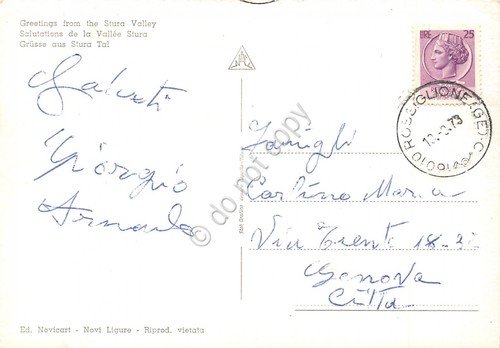 Greetings from the Stura Valley
Salutations de la Vallée Stura
Grüsse aus Stura Tal
Saluti
Giorgio
Armando
LIRE 25
ROSSIGLIONE (GE)
Famiglia
Maria
Via Trento 18-
Genova
Città
do not copy
Ed. Nevicart - Novi Ligure - Riprod. vietata